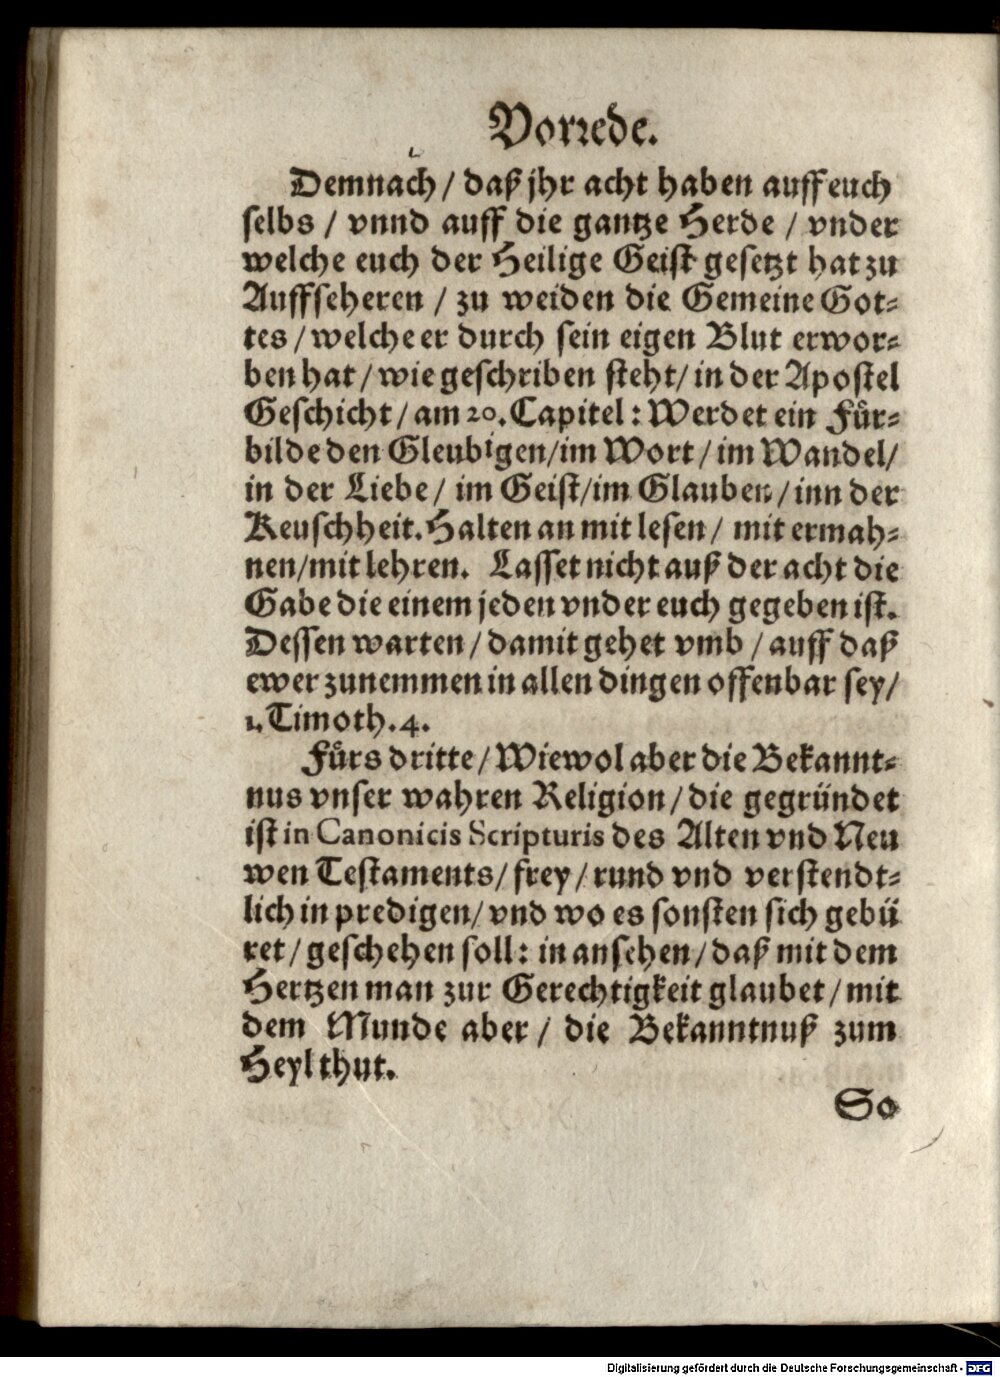 Vorrede.
Demnach / daß jhr acht haben auff euch
selbs / vnnd auff die gantze Herde / vnder
welche euch der Heilige Geist gesetzt hat zu
Auffseheren / zu weiden die Gemeine Got⸗
tes / welche er durch sein eigen Blut erwor⸗
ben hat / wie geschriben steht / in der Apostel
Geschicht / am 20. Capitel : Werdet ein Fuͤr⸗
bilde den Gleubigen / im Wort / im Wandel /
in der Liebe / im Geist / im Glauben / inn der
Keuschheit. Halten an mit lesen / mit ermah⸗
nen / mit lehren. Lasset nicht auß der acht die
Gabe die einem jeden vnder euch gegeben ist.
Dessen warten / damit gehet vmb / auff daß
ewer zunemmen in allen dingen offenbar sey /
1. Timoth. 4.
Fuͤrs dritte / Wiewol aber die Bekannt⸗
nus vnser wahren Religion / die gegründet
ist in Canonicis Scripturis des Alten vnd Neu
wen Testaments / frey / rund vnd verstendt⸗
lich in predigen / vnd wo es sonsten sich gebü
ret / geschehen soll : in ansehen / daß mit dem
Hertzen man zur Gerechtigkeit glaubet / mit
dem Munde aber / die Bekanntnuß zum
Heyl thut.
So
Digitalisierung gefördert durch die Deutsche Forschungsgemeinschaft - DFG